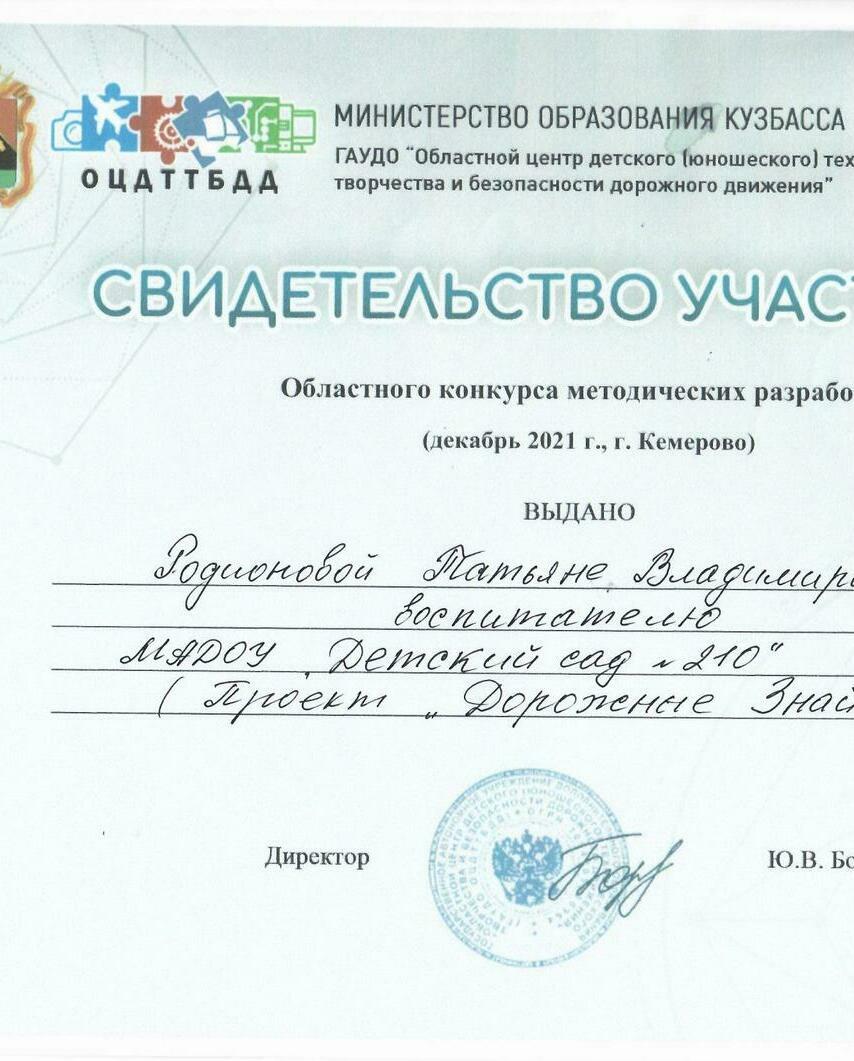 МИНИСТЕРСТВО ОБРАЗОВАНИЯ КУЗБАССА
ГАУДО “Областной центр детского (юношеского) тех
творчества и безопасности дорожного движения”
ОЦДТТБДД
СВИДЕТЕЛЬСТВО УЧАС
Областного конкурса методических разрабо
(декабрь 2021 г., г. Кемерово)
ВЫДАНО
Родионовой Татьяне Владимиро
воспитателю
МАДОУ „Детский сад №210“
(Проект „Дорожные Знай
Директор
Ю.В. Бо